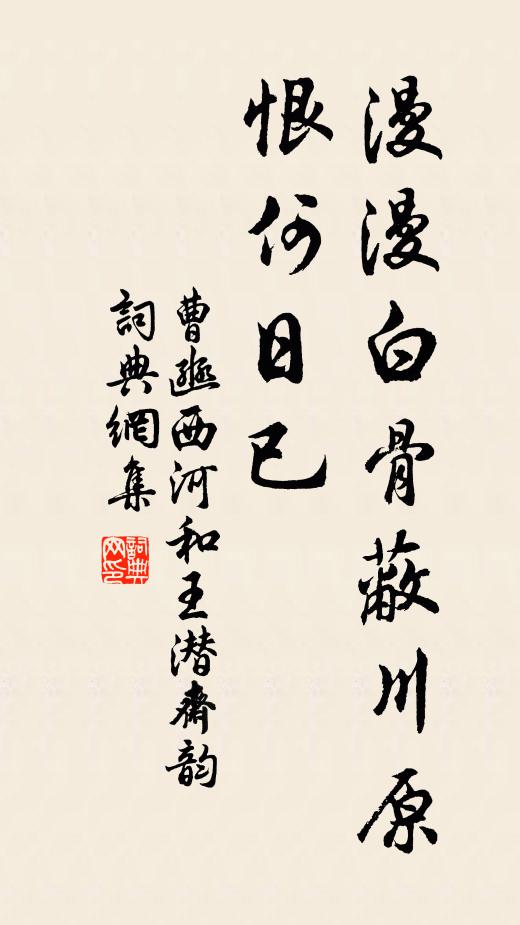 漫漫白骨蔽川原
恨何日已
曹豳西河和王潜齋韵
詞典網集
詞典网印